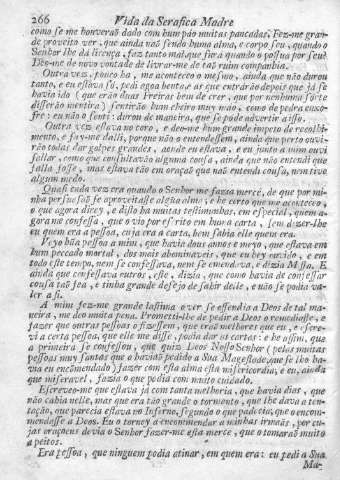 266 Vida da Serafica Madre
como se me houveraõ dado com hum páo muitas pancadas. Fez-me gran-
de proveito ver, que ainda naõ sendo huma alma, e corpo seu, quando o
Senhor lhe dá licença, faz tanto mal, que fará quando o possua por seu?
Deo-me de novo vontade de livrar-me de taõ ruim companhia.
Outra vez, pouco ha, me aconteceo o mesmo, ainda que não durou
tanto, e eu estava só, pedi agoa benta, e as que entráraõ depois que já se
havia ido (que eraõ duas Freiras bem de crer, que por nenhuma sorte
disseraõ mentira) sentiraõ hum cheiro muy máo, como de pedra enxo-
fre: eu naõ o senti: durou de maneira, que se pôde advertir a isso.
Outra vez estava no coro, e deo-me hum grande impeto de recolhi-
mento, e fuy-me dalli, porque não o entendessem, ainda que perto ouvi-
raõ todas dar golpes grandes, aonde eu estava, e eu junto a mim ouvi
fallar, como que consultavaõ alguma cousa, ainda que não entendi que
falla fosse, mas estava taõ em oraçaõ que naõ entendi cousa, nem tive
algum medo.
Quasi cada vez era quando o Senhor me fazia mercê, de que por mi-
nha persuasaõ se aproveitasse algũa alma; e he certo que me aconteceo,
o que agora direy, e disto ha muitas testimunhas, em especial, quem a-
gora me confessa, que o vio por escrito em huma carta, sem dizer-lhe
eu quem era a pessoa, cuja era a carta, bem sabia elle quem era.
Veyo hũa pessoa a mim, que havia dous annos e meyo, que estava em
hum peccado mortal, dos mais abominaveis, que eu hey ouvido, e em
todo este tempo, nem se confessava, nem se emendava, e dizia Missa. E
ainda que confessava outros, este, dizia, que como havia de confessar
cousa taõ fea, e tinha grande desejo de sahir delle, e não se podia va-
ler a si.
A mim fez-me grande lastima e ver se offendia a Deos de tal ma-
neira, me deo muita pena. Prometti-lhe de pedir a Deos o remediasse, e
fazer que outras pessoas o fizessem, que eraõ melhores que eu, e escre-
vi a certa pessoa, que elle me disse, podia dar as cartas: e he assim, que
a primeira se confessou, que quiz Deos Nosso Senhor (pelas muitas
pessoas muy santas que o haviaõ pedido a Sua Magestade, que se lho ha-
via eu encõmendado) fazer com esta alma esta misericordia, e eu, ainda
que miseravel, fazia o que podia com muito cuidado.
Escreveo-me que estava já com tanta melhoria, que havia dias, que
não cabia nelle, mas que era tão grande o tormento, que lhe dava a ten-
tação, que parecia estava no Inferno, segundo o que padecia, que o encom-
mendasse a Deos. Eu o torney a encommendar a minhas irmãas, por cu-
jas orações devia o Senhor fazer-me esta mercê, que o tomaraõ muito
a peitos.
Era pessoa, que ninguem podia atinar, em quem era: eu pedi a Sua
Ma-